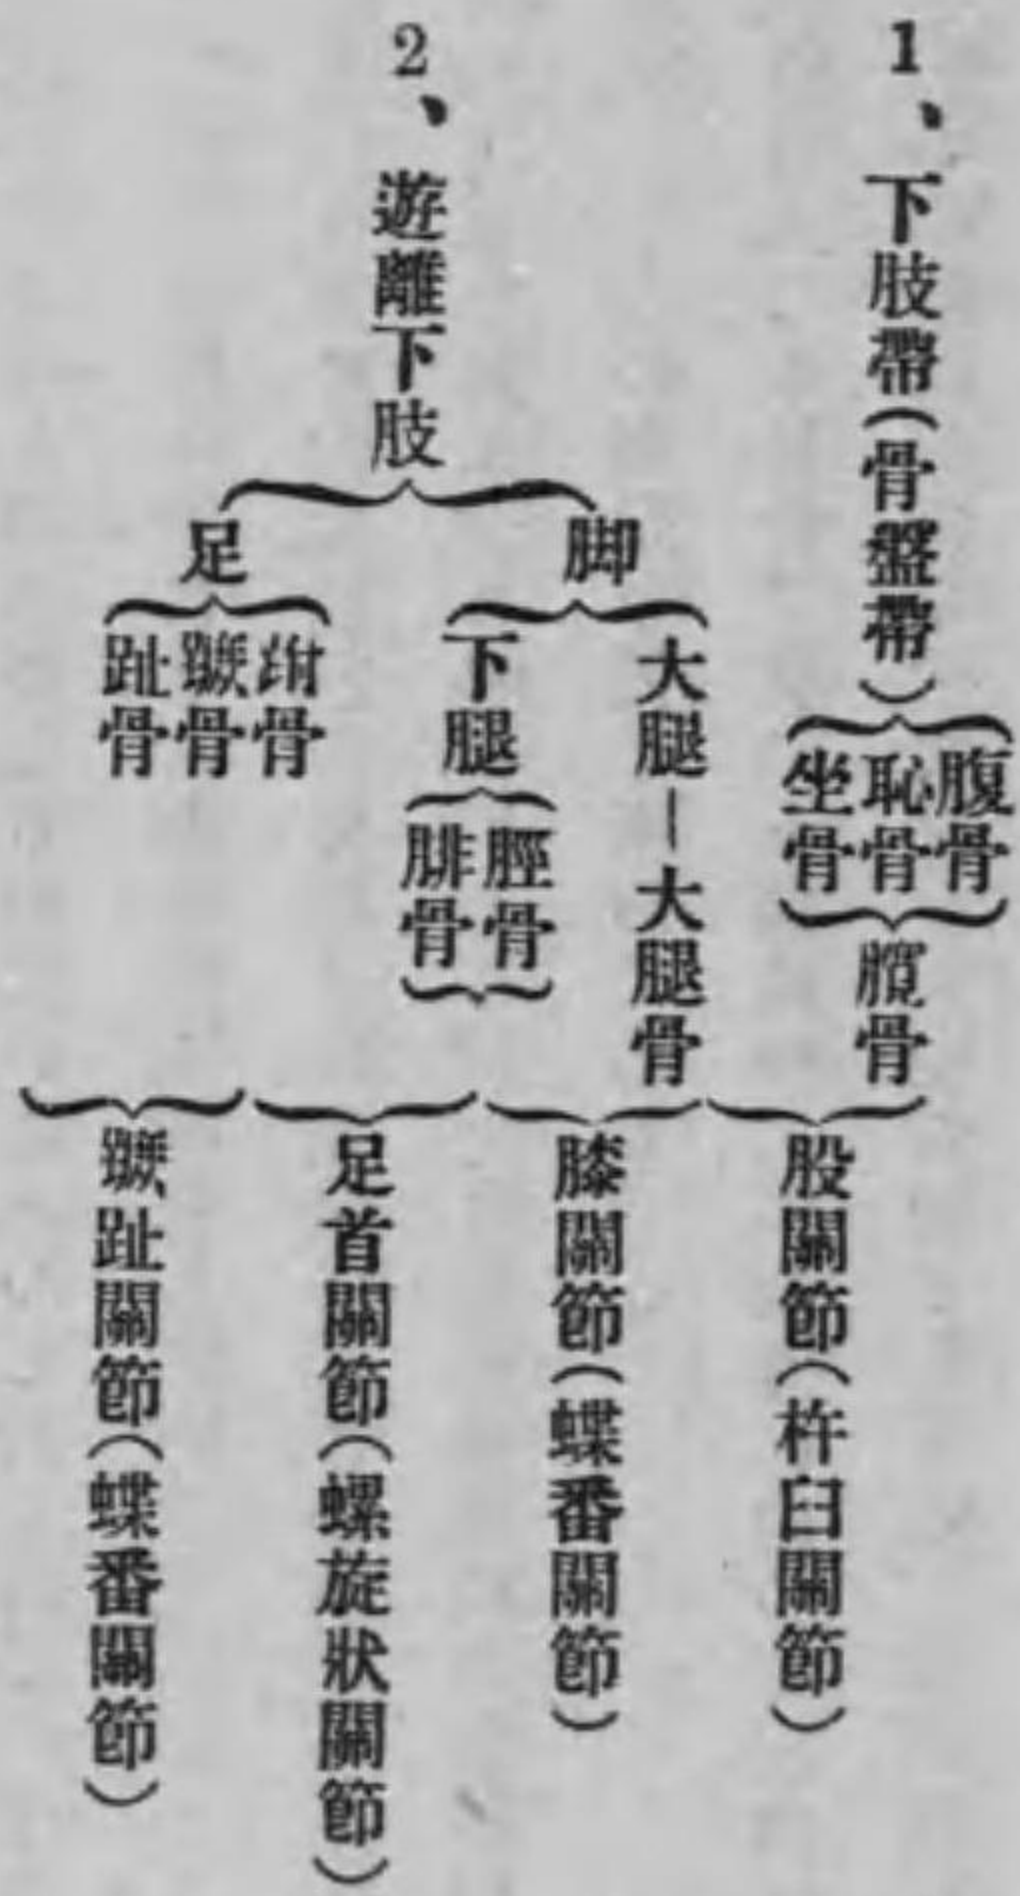 1、下肢帶(骨盤帶)
腹骨
恥骨
坐骨
臗骨
2、遊離下肢
脚
大腿—大腿骨
下腿
脛骨
腓骨
足
跗骨
蹶骨
趾骨
股關節(杵臼關節)
膝關節(蝶番關節)
足首關節(螺旋狀關節)
蹶趾關節(蝶番關節)